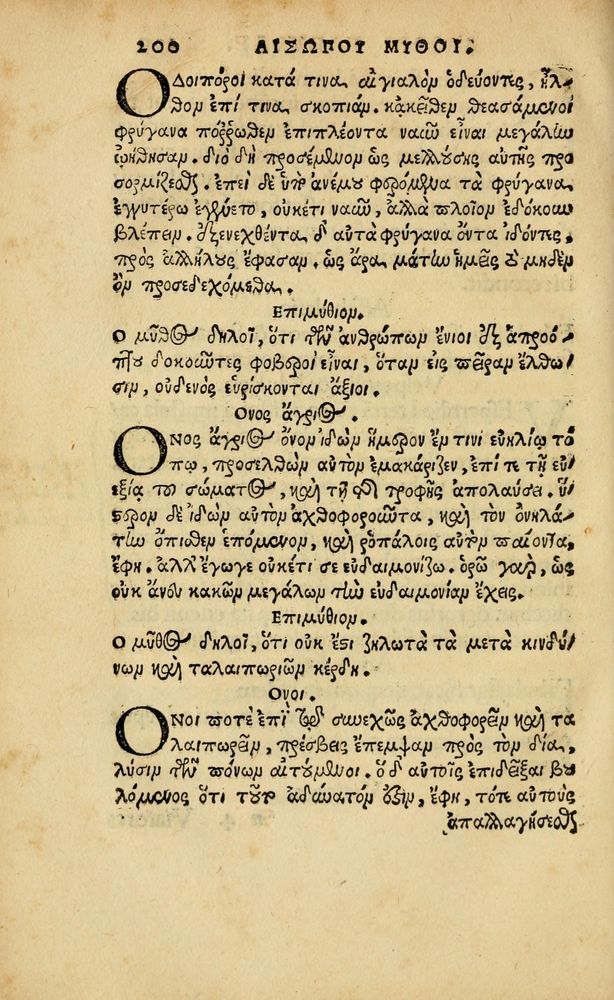 200 ΑΙΣΩΠΟΥ ΜΥΘΟΙ.
Ὁδοιπόροι κατά τινα αἰγιαλὸν ὁδεύοντες, ἦλ-
θον ἐπί τινα σκοπιάν. κἀκεῖθεν θεασάμενοι
φρύγανα πόῤῥωθεν ἐπιπλέοντα ναῦν εἶναι μεγάλην
ᾠήθησαν. διὸ δὴ προσέμενον ὡς μελλούσης αὐτῆς προ
σορμίζεσθαι. ἐπεὶ δὲ ὑπὸ ἀνέμου φερόμενα τὰ φρύγανα
ἐγγυτέρω ἐγένετο, οὐκέτι ναῦν, ἀλλὰ πλοῖον ἐδόκουν
βλέπειν. ἐξενεχθέντα δ' αὐτὰ φρύγανα ὄντα ἰδόντες,
πρὸς ἀλλήλους ἔφασαν. ὡς ἄρα μάτην ἡμεῖς τὸ μηδὲν
ὂν προσεδεχόμεθα.
Ἐπιμύθιον.
Ὁ μῦθος δηλοῖ, ὅτι τῶν ἀνθρώπων ἔνιοι ἐξ ἀπροό-
πτου δοκοῦντες φοβεροὶ εἶναι, ὅταν εἰς πεῖραν ἔλθω-
σιν, οὐδενὸς εὑρίσκονται ἄξιοι.
Ὄνος ἄγριος.
Ὄνος ἄγριος ὄνον ἰδὼν ἥμερον ἔν τινι εὐηλίῳ τό
πῳ, προσελθὼν αὐτὸν ἐμακάριζεν, ἐπί τε τῇ εὐ-
εξίᾳ τοῦ σώματος, καὶ τῇ τῆς τροφῆς ἀπολαύσει. ὕ-
στερον δὲ ἰδὼν αὐτὸν ἀχθοφοροῦντα, καὶ τὸν ὀνηλά-
την ὄπιθεν ἑπόμενον, καὶ ῥοπάλοις αὐτὸν παίοντα,
ἔφη. ἀλλ' ἔγωγε οὐκέτι σε εὐδαιμονίζω. ὁρῶ γὰρ, ὡς
οὐκ ἄνευ κακῶν μεγάλων τὴν εὐδαιμονίαν ἔχεις.
Ἐπιμύθιον.
Ὁ μῦθος δηλοῖ, ὅτι οὐκ ἔστι ζηλωτὰ τὰ μετὰ κινδύ-
νων καὶ ταλαιπωριῶν κέρδη.
Ὄνοι.
Ὄνοι ποτὲ ἐπὶ τῷ συνεχῶς ἀχθοφορεῖν καὶ τα
λαιπωρεῖν, πρέσβεις ἔπεμψαν πρὸς τὸν δία,
λύσιν τῶν πόνων αἰτούμενοι. ὁ δ' αὐτοῖς ἐπιδεῖξαι βου
λόμενος ὅτι τοῦτ' ἀδύνατόν ἐστιν, ἔφη, τότε αὐτοὺς
ἀπαλλαγήσεσθαι